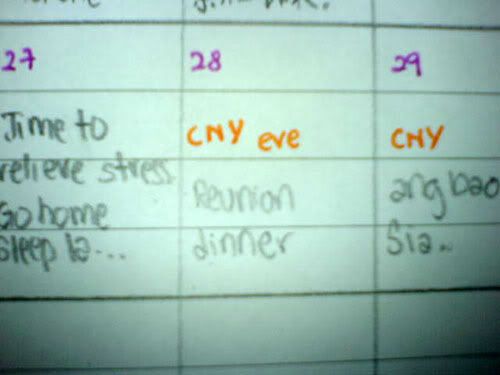 27 28 29
Time to
relieve stress
Go home
Sleep la...
CNY eve
Reunion
dinner
CNY
ang bao
Sia..